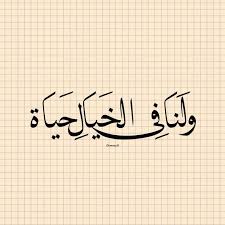 ولَنَا فِي الخَيَالِ حَيَاة